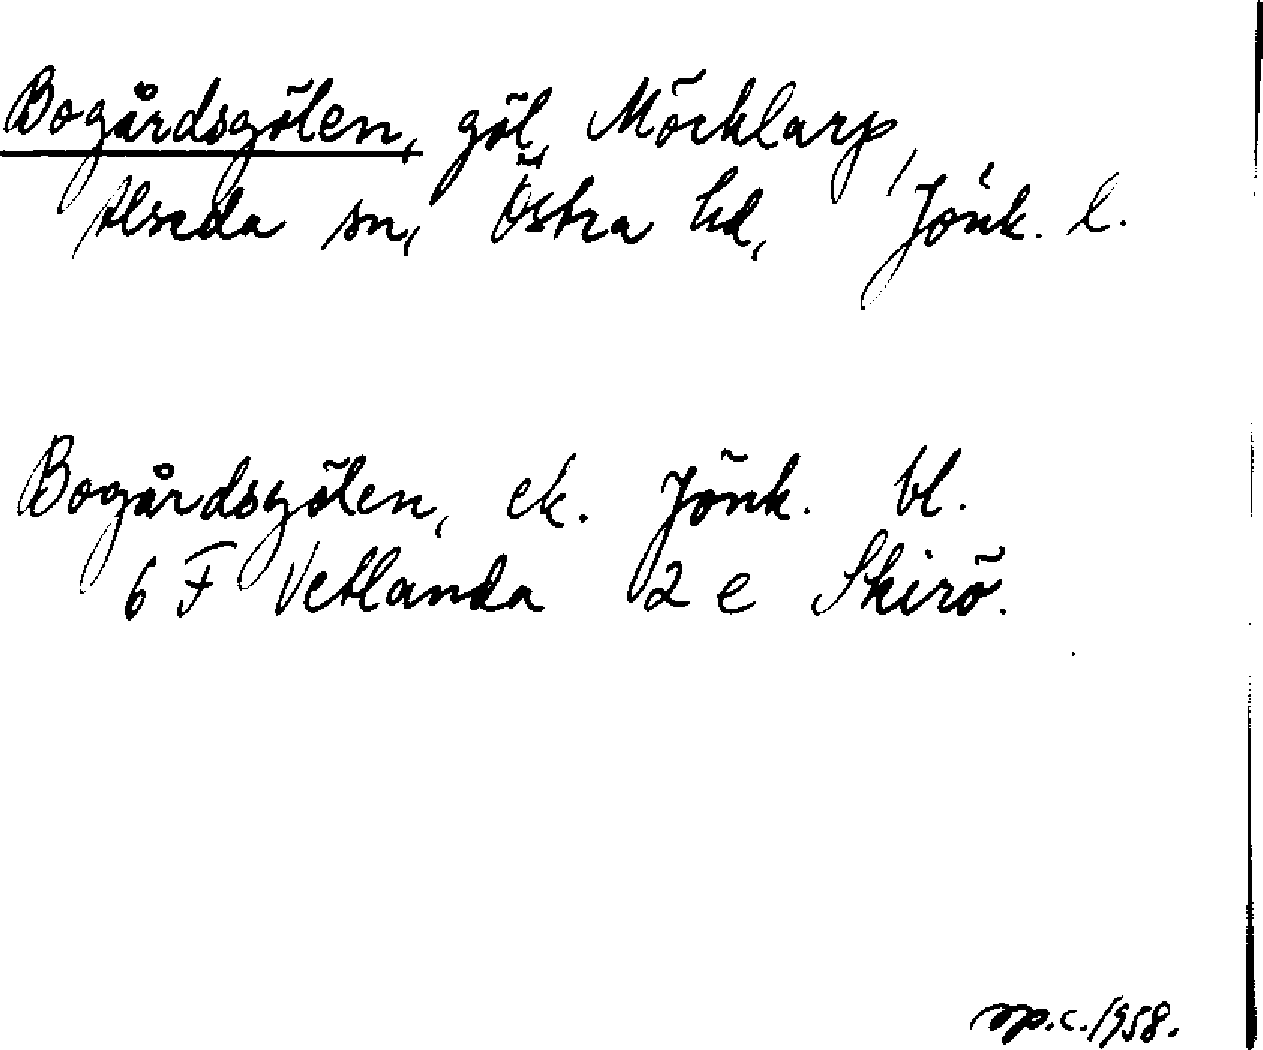 Bogårdsgölen, göl, Möcklarp,
Alseda sn, Östra hd, Jönk. l.
Bogårdsgölen, ek. Jönk. bl.
6 F Vetlanda 2 e Skirö.
op.c. 1958.